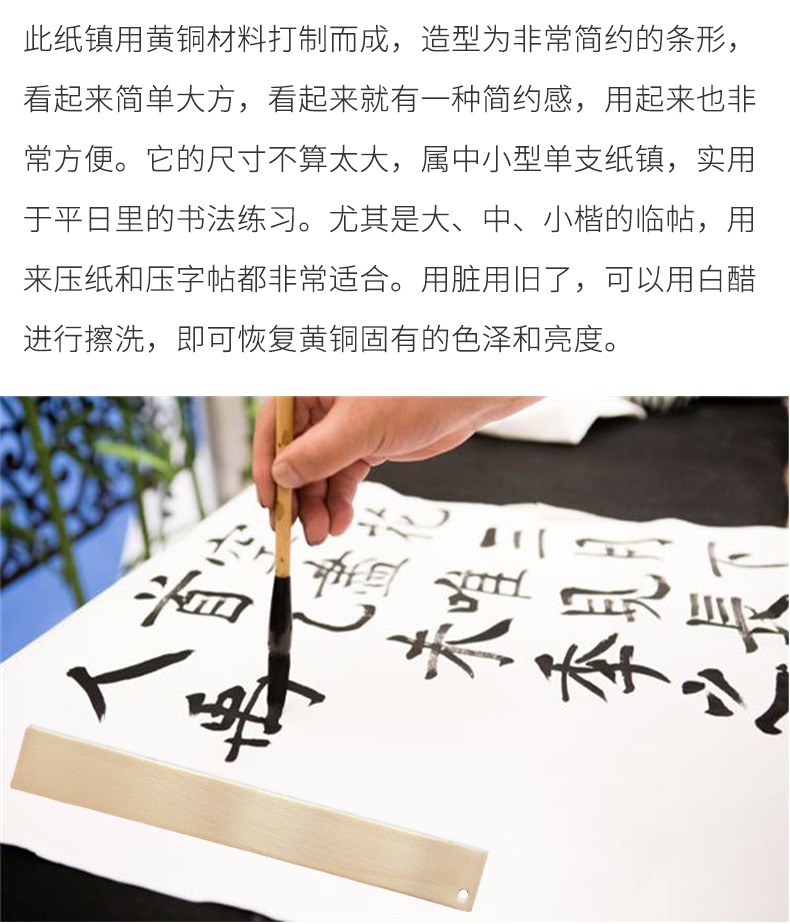 此纸镇用黄铜材料打制而成，造型为非常简约的条形，
看起来简单大方，看起来就有一种简约感，用起来也非
常方便。它的尺寸不算太大，属中小型单支纸镇，实用
于平日里的书法练习。尤其是大、中、小楷的临帖，用
来压纸和压字帖都非常适合。用脏用旧了，可以用白醋
进行擦洗，即可恢复黄铜固有的色泽和亮度。
花三月下
唯見長